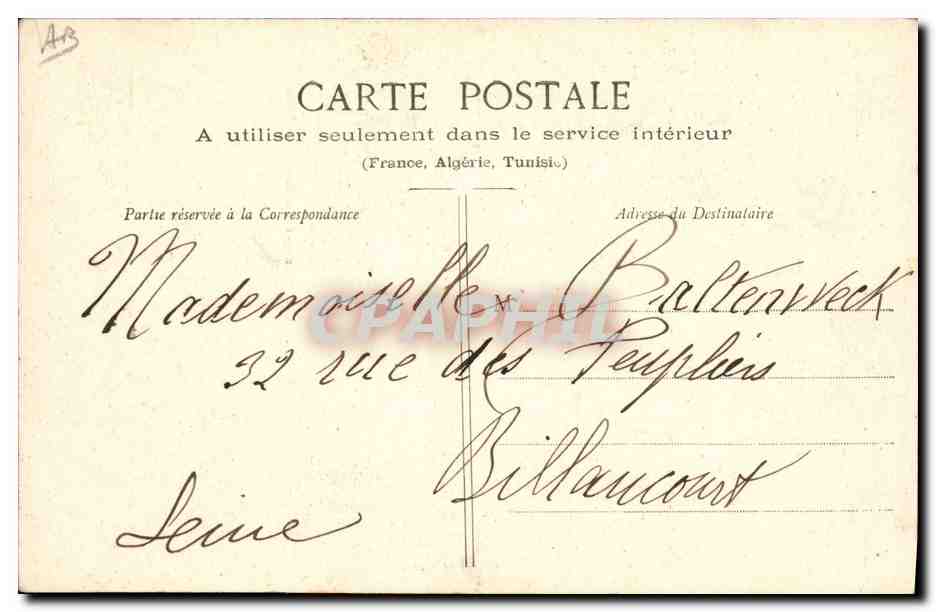 AB
CARTE POSTALE
A utiliser seulement dans le service intérieur
(France, Algérie, Tunisie)
Partie réservée à la Correspondance
Adresse du Destinataire
Mademoiselle x Baltenweck
CPAPHIL
32 rue des Peupliers
Billancourt
Seine